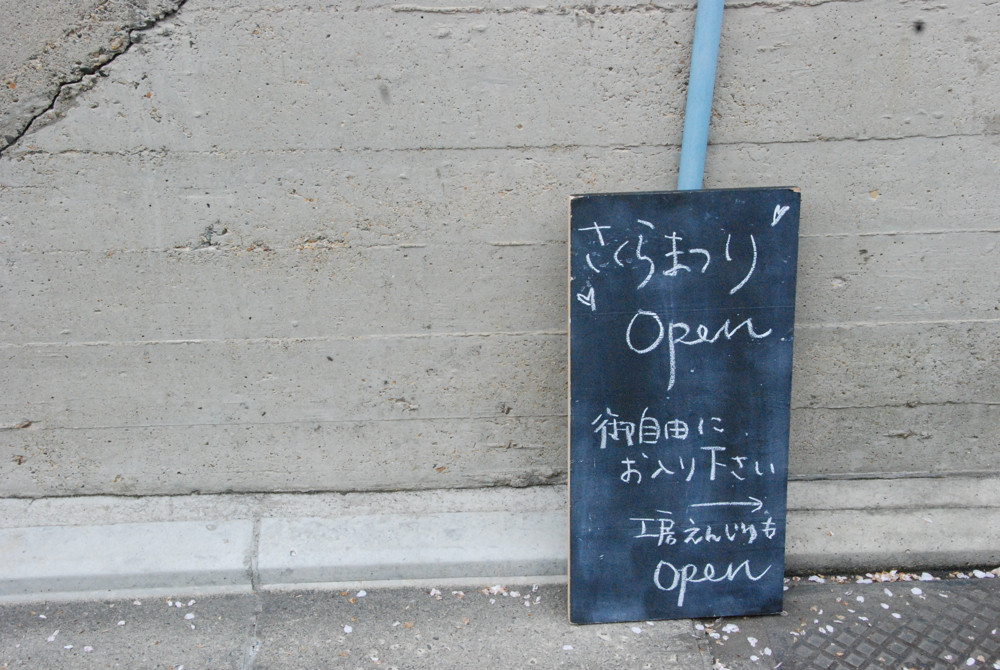 さくらまつり
Open
御自由に
お入り下さい
→
工房えんじゅも
Open